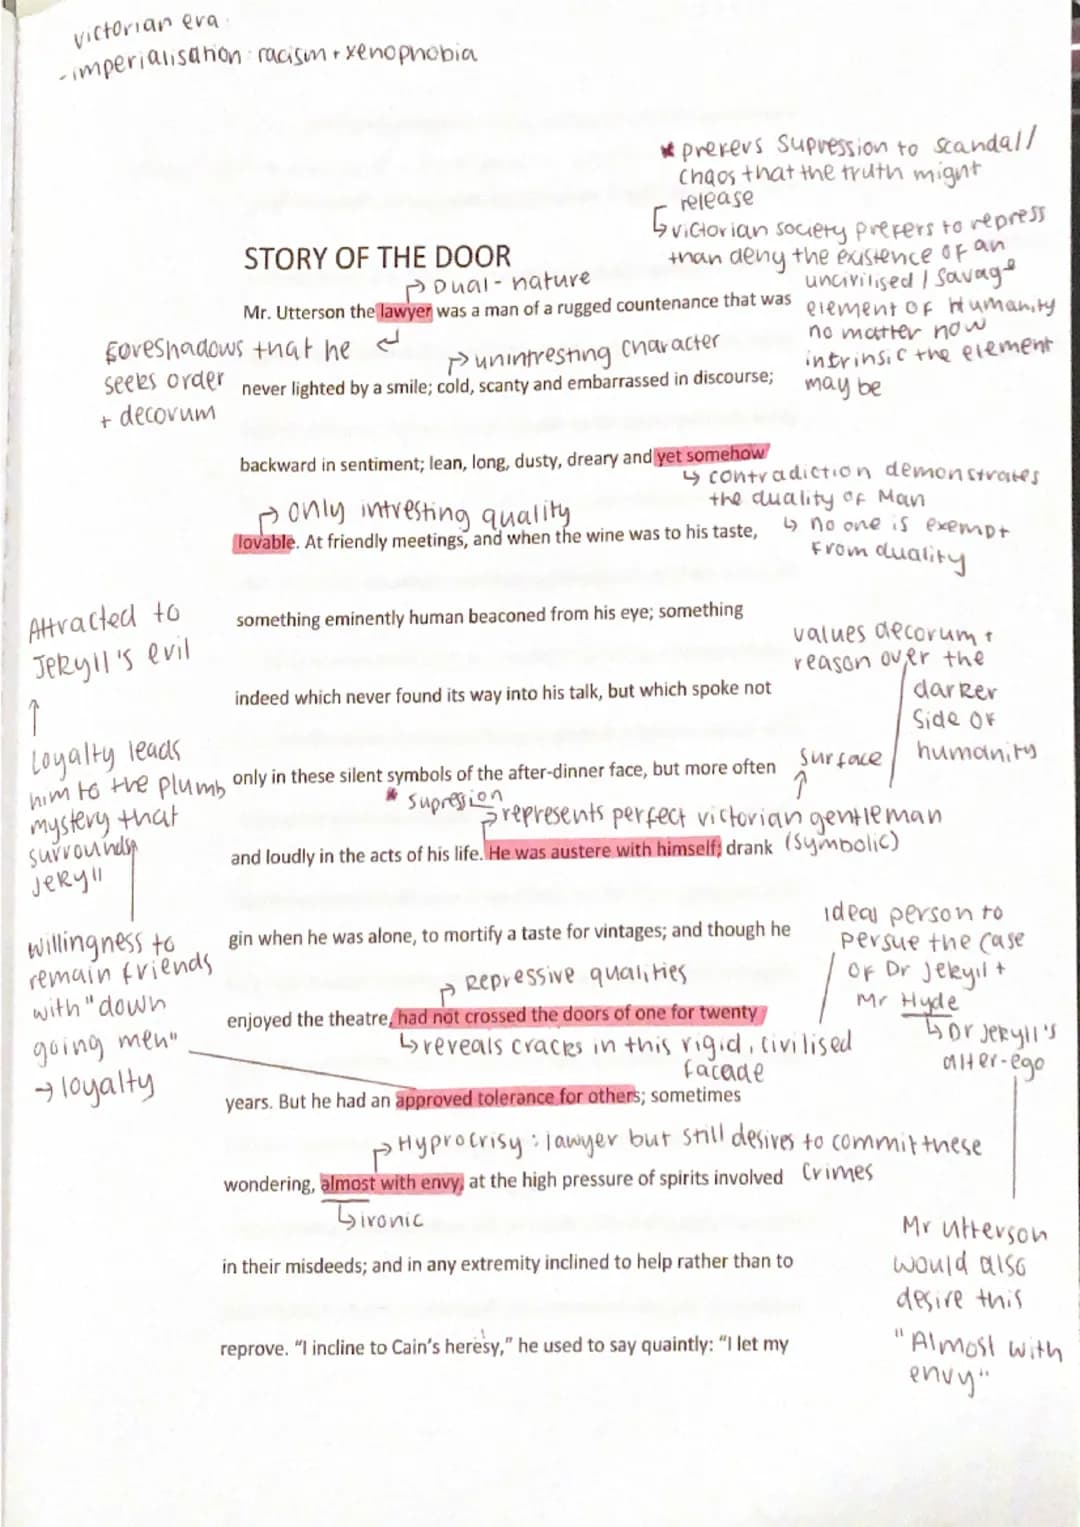 victorian era
- imperialisation: racism + xenophobia
* prefers supression to scandal/
chaos that the truth might
release
↳ victorian society prefers to repress
than deny the existence of an
uncivilised / savage
element of Humanity
no matter how
intrinsic the element
may be
STORY OF THE DOOR
Dual-nature
Mr. Utterson the lawyer was a man of a rugged countenance that was
foreshadows that he
seeks order
+ decorum
unintresting character
never lighted by a smile; cold, scanty and embarrassed in discourse;
backward in sentiment; lean, long, dusty, dreary and yet somehow
↳ contradiction demonstrates
the duality of Man
↳ no one is exempt
from duality
only intresting quality
lovable. At friendly meetings, and when the wine was to his taste,
something eminently human beaconed from his eye; something
Attracted to
Jekyll's evil
↑
Loyalty leads
him to the plumb
mystery that
surrounds
Jekyll
values decorum +
reason over the
darker
side of
humanity
indeed which never found its way into his talk, but which spoke not
only in these silent symbols of the after-dinner face, but more often
surface
* supression
represents perfect victorian gentleman
(symbolic)
and loudly in the acts of his life. He was austere with himself; drank
willingness to
remain friends
with "down
going men"
→ loyalty
gin when he was alone, to mortify a taste for vintages; and though he
ideal person to
persue the case
of Dr Jekyll +
Mr Hyde
↳ Dr Jekyll's
alter-ego
Repressive qualities
enjoyed the theatre, had not crossed the doors of one for twenty
↳ reveals cracks in this rigid, civilised
facade
years. But he had an approved tolerance for others; sometimes
Hyprocrisy: lawyer but still desires to commit these
crimes
wondering, almost with envy, at the high pressure of spirits involved
↳ ironic
in their misdeeds; and in any extremity inclined to help rather than to
Mr Utterson
would also
desire this
"Almost with
envy"
reprove. “I incline to Cain’s heresy,” he used to say quaintly: “I let my